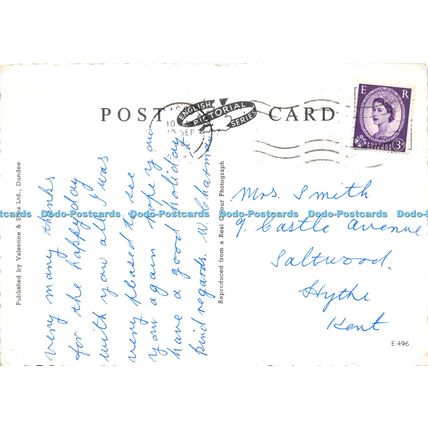 POST CARD
ENGLISH
PICTORIAL
SERIES
E R
POSTAGE
3D
10
SEP
Published by Valentine & Sons Ltd., Dundee
very many thanks
for the happy day
with you all. I was
very pleased to see
you again hope you
have a good holiday
kind regards. W
Reproduced from a Real Colour Photograph
Mrs. Smith
9. Castle Avenue
Saltwood.
Hythe
Kent
E.496
Dodo-Postcards Dodo-Postcards Dodo-Postcards Dodo-Postcards Dodo-Postcards